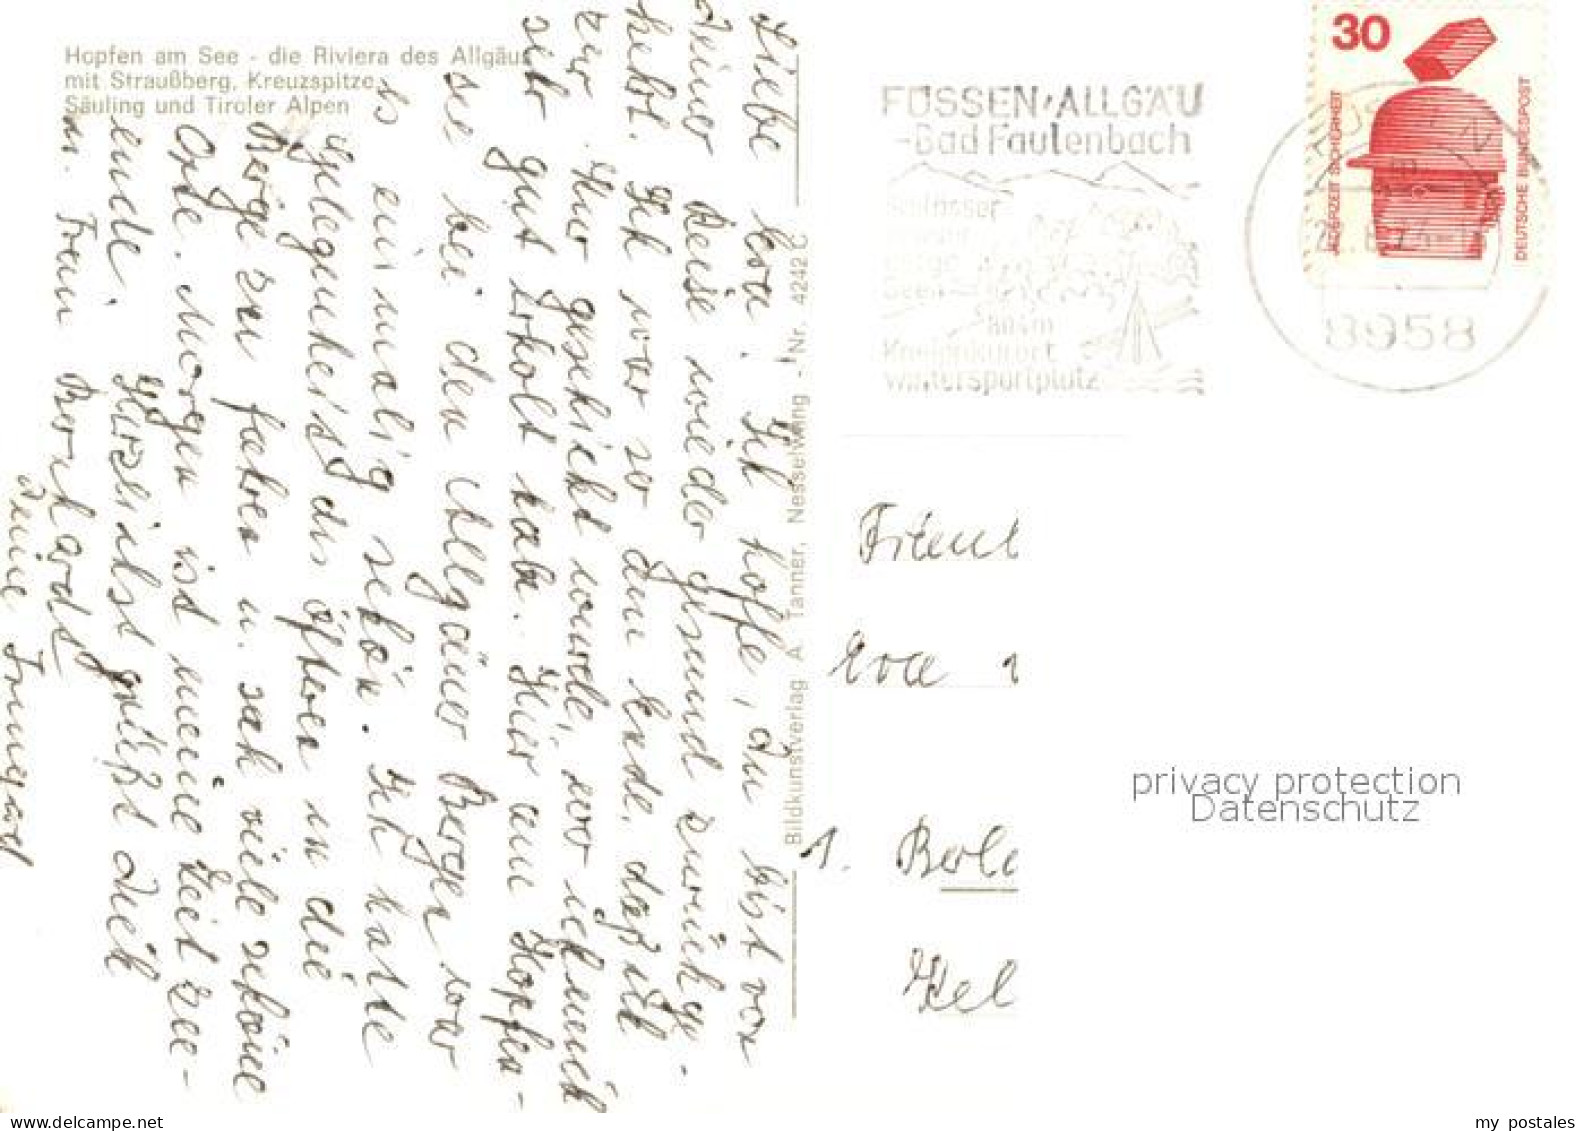 Hopfen am See - die Riviera des Allgäus
mit Straußberg, Kreuzspitze,
Säuling und Tiroler Alpen
Liebe Eva! Ich hoffe, Du bist von
Deiner Reise wieder gesund zurückge-
kehrt. Ich war so am Ende, daß ich
zur Kur geschickt wurde, wo ich mich
sehr gut erholt habe. Hier am Hopfen-
see bei den Allgäuer Bergen war
es einmalig schön. Ich hatte
Gelegenheit des öfteren in die
Berge zu fahren u. sah viele schöne
Orte. Morgen ist meine Zeit zu
ende. Herzlichst grüßt Dich
Deine Irmgard
u. Frau Bernhardt
Bildkunstverlag A. Tanner, Nesselwang - Nr. 4242 C
FÜSSEN/ALLGÄU
-Bad Faulenbach
Schlösser
Berge
Seen
804m
Kneippkurort
Wintersportplatz
30
JEDERZEIT SICHERHEIT
DEUTSCHE BUNDESPOST
8958
Eva
1. Berl
privacy protection
Datenschutz
www.delcampe.net
my postales